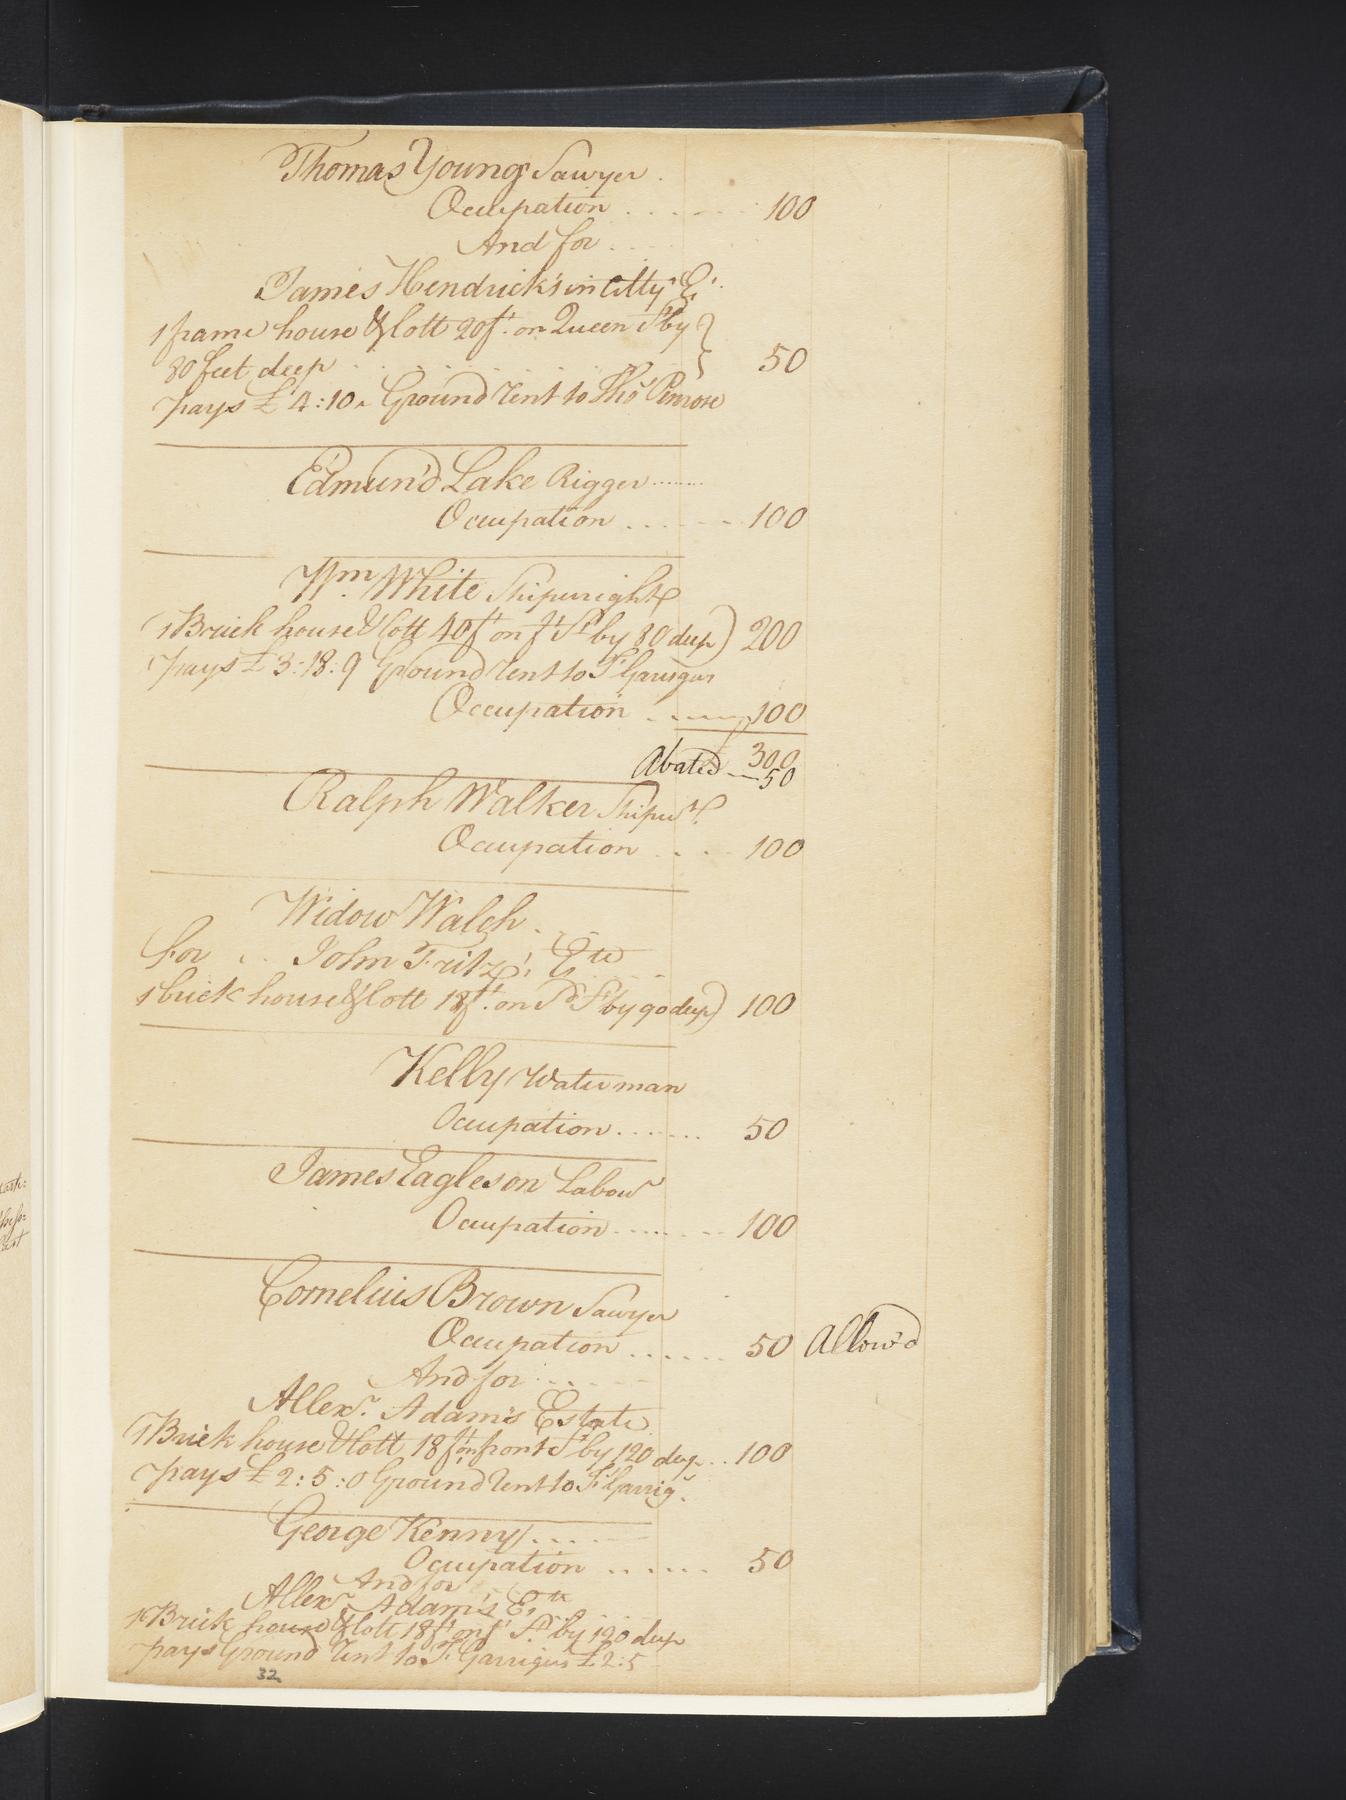 Thomas Young Sawyer
Occupation ....... 100
And for ....
James Hendrick's in Citty E.
1 frame house & lott 20ft. on Queen St by
80 feet deep ....... 50
pays £4:10. Ground Rent to Thos Penrose
Edmund Lake Rigger .......
Occupation ...... 100
Wm. White Shipwright
1 Brick house & lott 40ft on ft St by 80 deep) 200
pays £3:18:9 Ground Rent to F Garrigus
Occupation ...... 100
300
Abated -- 50
Ralph Walker Shipwt.
Occupation .... 100
Widow Walch.
for .. John Fritz's Este
1 brick house & lott 18ft. on Sd St by 90 deep) 100
Kelly Waterman
Occupation ....... 50
James Eagleson Labour
Occupation ....... 100
Cornelius Brown Sawyer
Occupation ...... 50 Allow'd
And for .....
Allexr. Adam's Estate
1 Brick house & lott 18ft on front St by 120 deep .. 100
pays £2:5:0 Ground Rent to F Garrigs.
George Kenny ....
Occupation ...... 50
And for
Allexr Adam's Este
1 Brick house & lott 18ft on ft St. by 120 deep
pays Ground Rent to F Garrigus £2:5
32